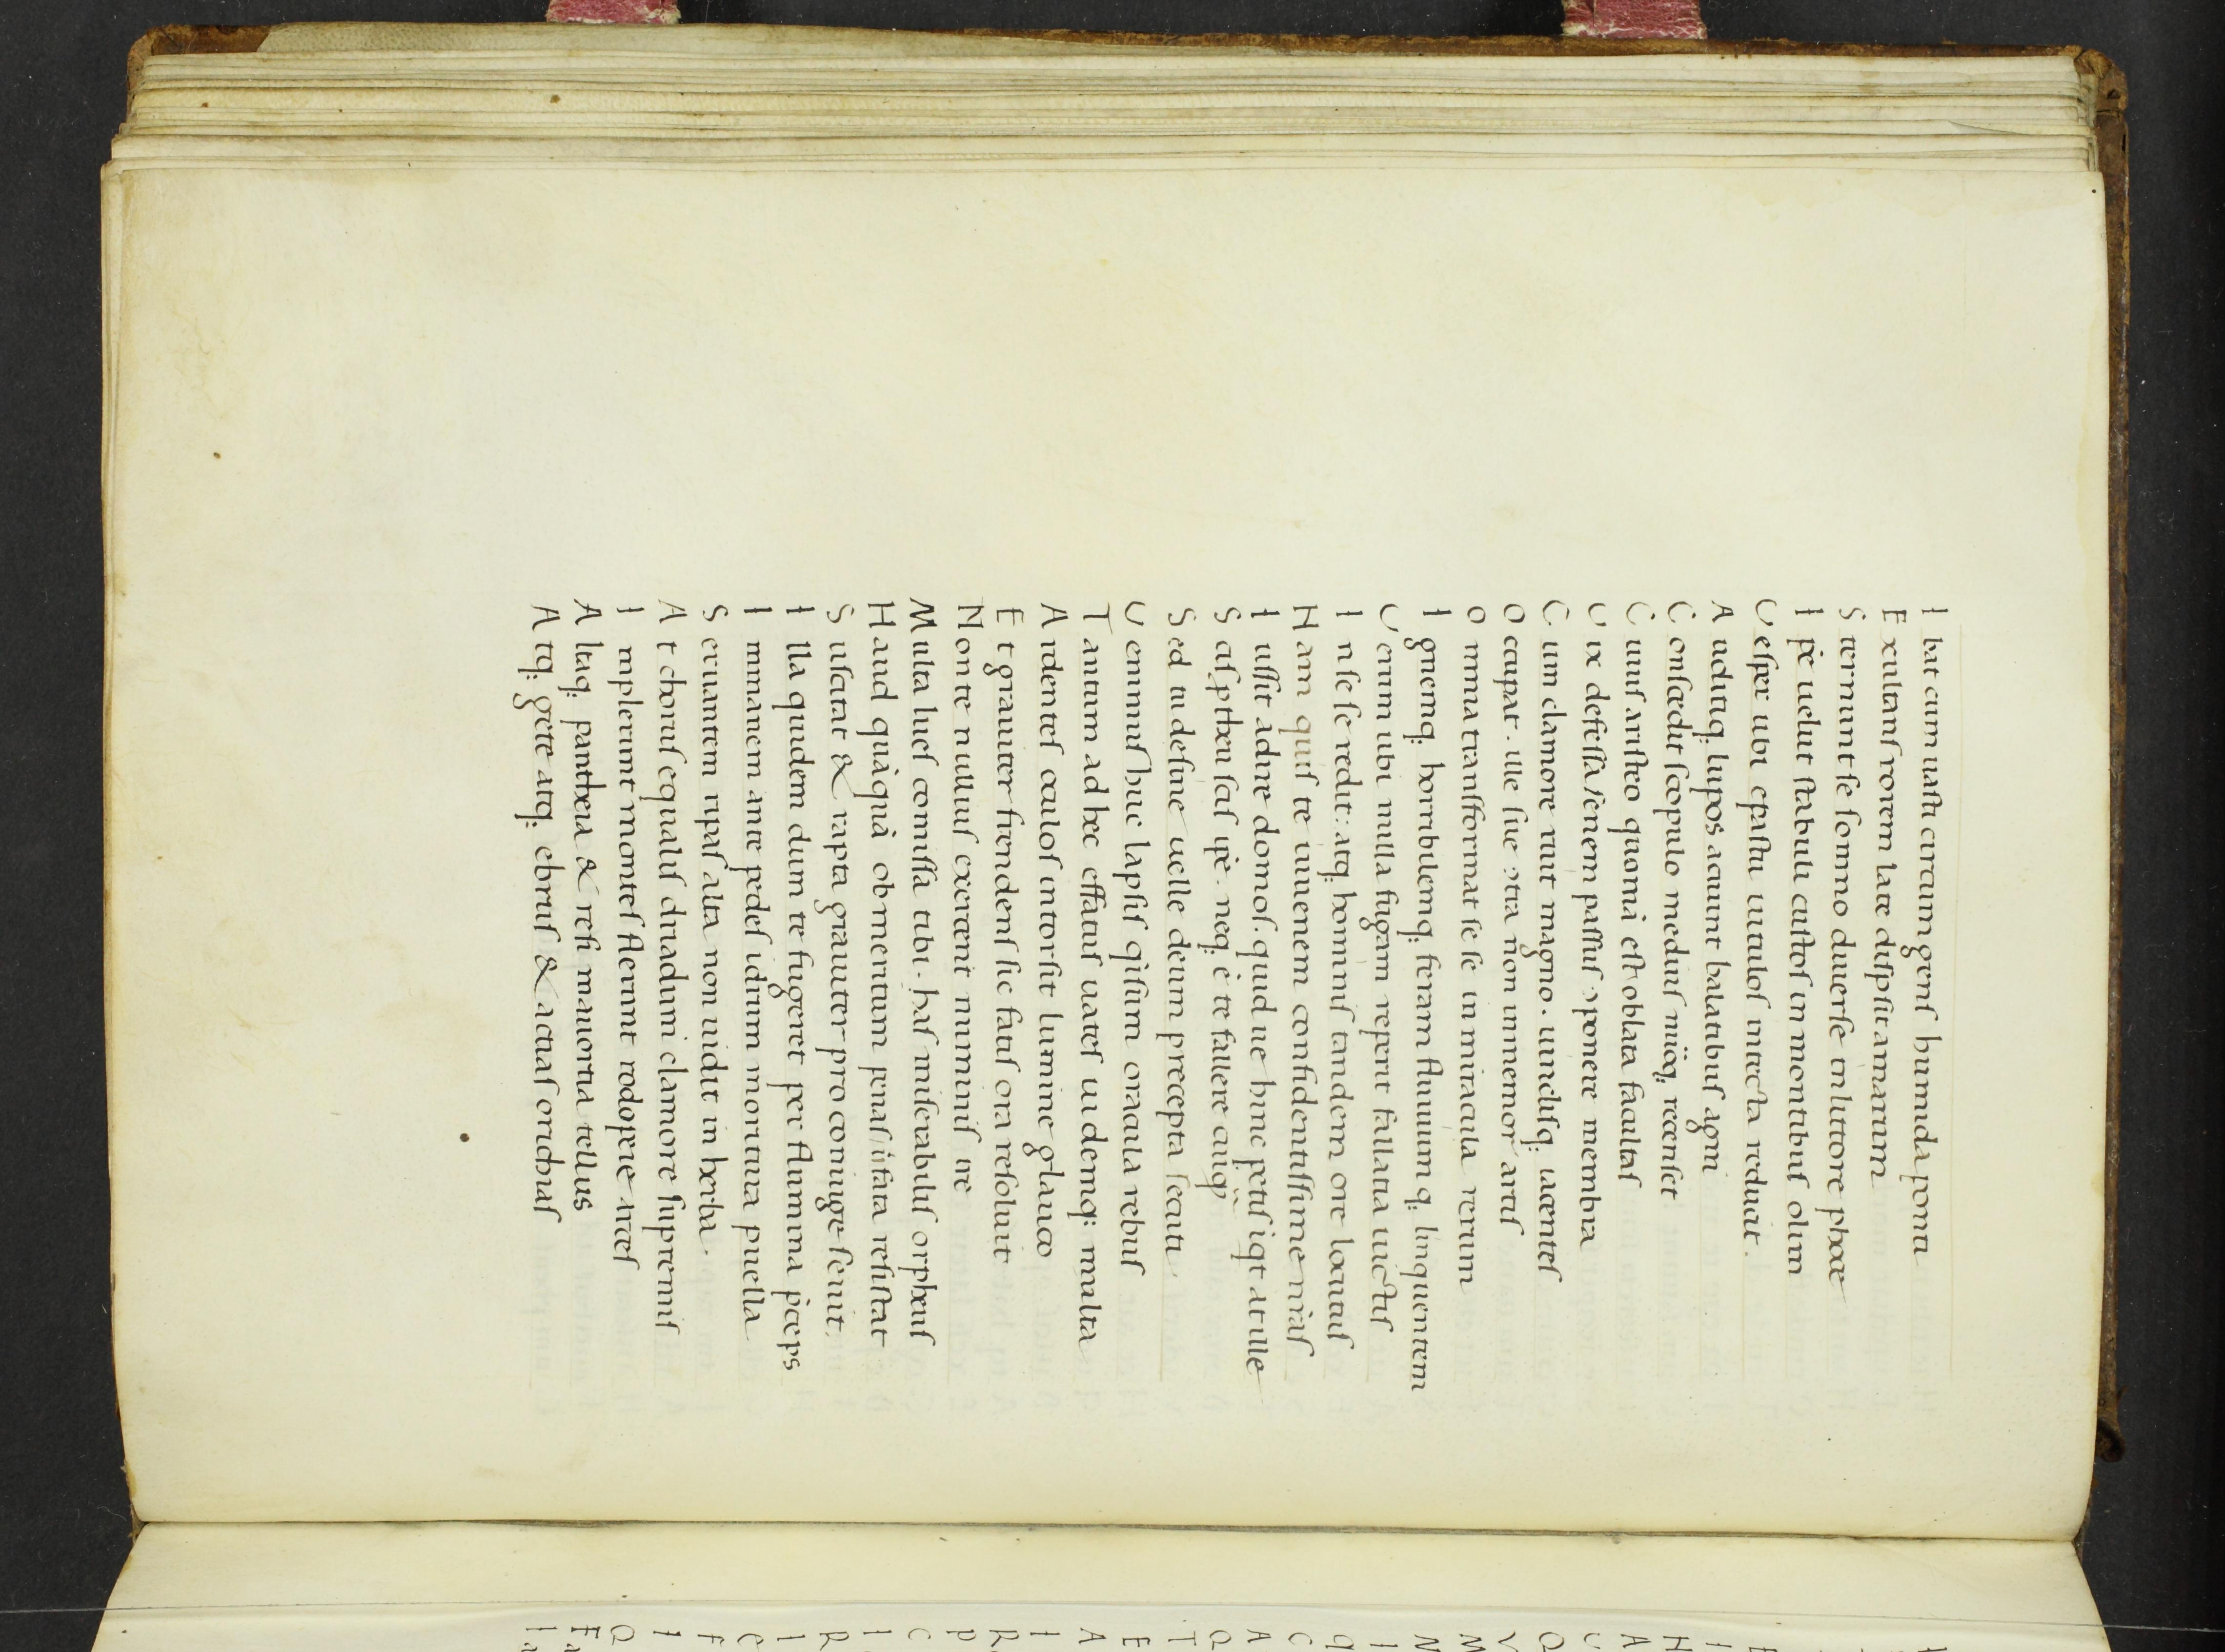 I bat cum uasti circum gens humida ponti
E xultans rorem late dispsit amarum
S ternunt se somno diuerse in littore phoce
I pse uelut stabuli custos in montibus olim
V esper ubi epastu uitulos intecta reducit.
A uditiq; lupos acuunt balatibus agni
C onscedit scopulo medius nūoq; recenset
C uius aristeo quoniā est oblata facultas
V ix defessā senem passus ɔponere membra
C um clamore ruit magno. uinclisq; iacentes
O ccupat. ille sue ɔtra non inmemor artis
O mnia transformat se se in miracula rerum
I gnemq; horribilemq; feram fluuiumq; linquentem
V erum ubi nulla fugam reperit fallatia uictus
I n se se redit: atq; hominis tandem ore locutus
N am quis te iuuenem confidentissime nr̄as
I ussit adire domos. quid ue hinc petis iqt at ille
S cis ptheu scis ipe. neq; ē te fallere cuiq̄
S ed tu desine uelle deum precepta secuti.
V enimus huc lapsis q̄situm oracula rebus
T antum ad hec effatus uates ui demq; multa
A rdentes oculos intorsit lumine glauco
E t grauiter frendens sic fatis ora resoluit
N on te nullius exercent numinis ire
M ulta lues comissa tibi. has miserabilis orpheus
H aud quāquā ob meritum penas ni fata resistat
S uscitat & rapta grauiter pro coniuge seuit.
I lla quidem dum te fugeret per flumina p̄ceps
I mmanem ante pedes idrum moritura puella
S eruantem ripas alta non uidit in herba.
A t chorus equalis driadum clamore supremis
I mplerunt montes flerunt rodopeie arces
A ltaq; pantheia & resi mauortia tellus
A tq; gete atq; ebrus & actias orichias